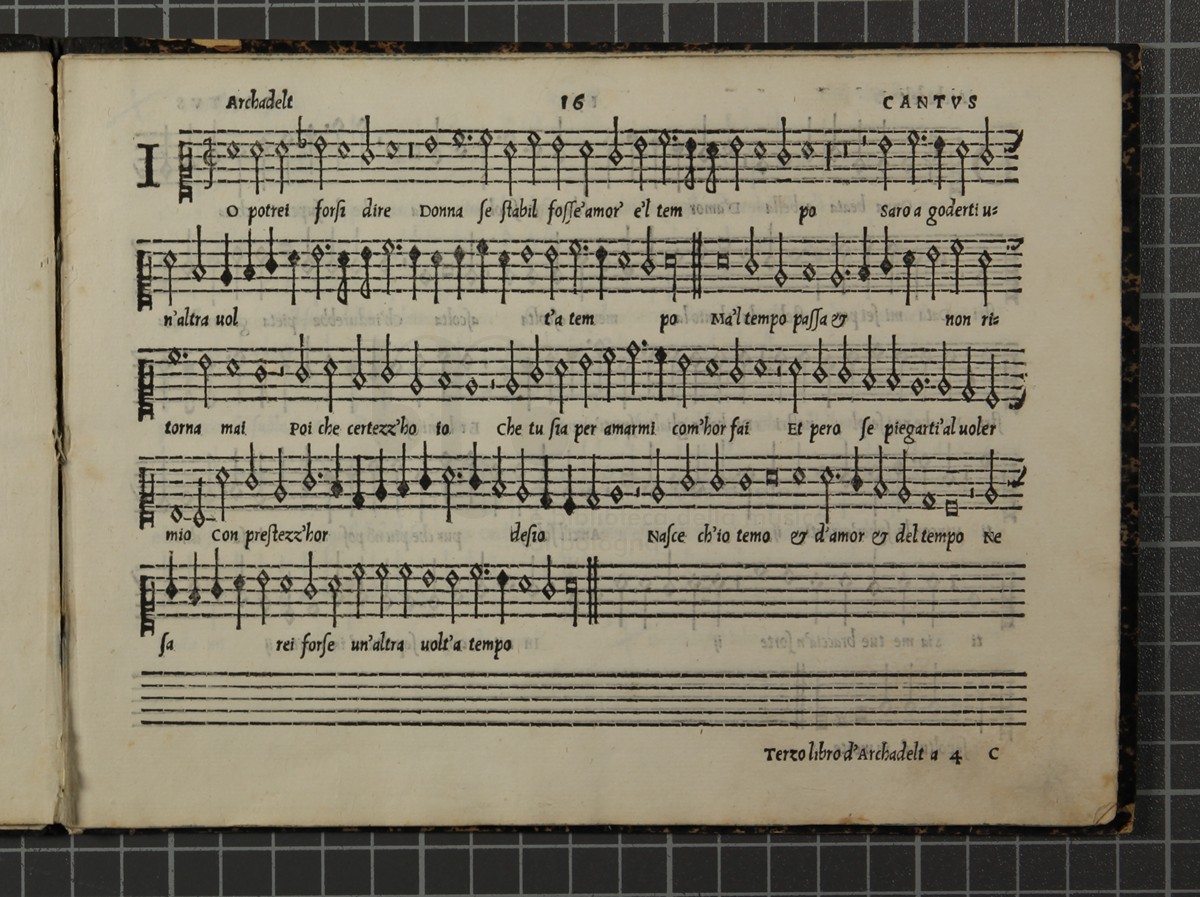 Archadelt 16 CANTVS
IO potrei forſi dire Donna ſe ſtabil foſſe'amor' e'l tem po Saro a goderti u=
n'altra uol t'a tem po Ma'l tempo paſſa & non ri=
torna mai Poi che certezz'ho io Che tu ſia per amarmi com'hor fai Et pero ſe piegarti'al uoler
mio Con preſtezz'hor deſio Naſce ch'io temo & d'amor & del tempo Ne
ſa rei forſe un'altra uolt'a tempo
Terzo libro d'Archadelt a 4 C